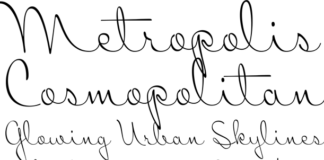 Metropolis
Cosmopolitan
Glowing Urban Skylines